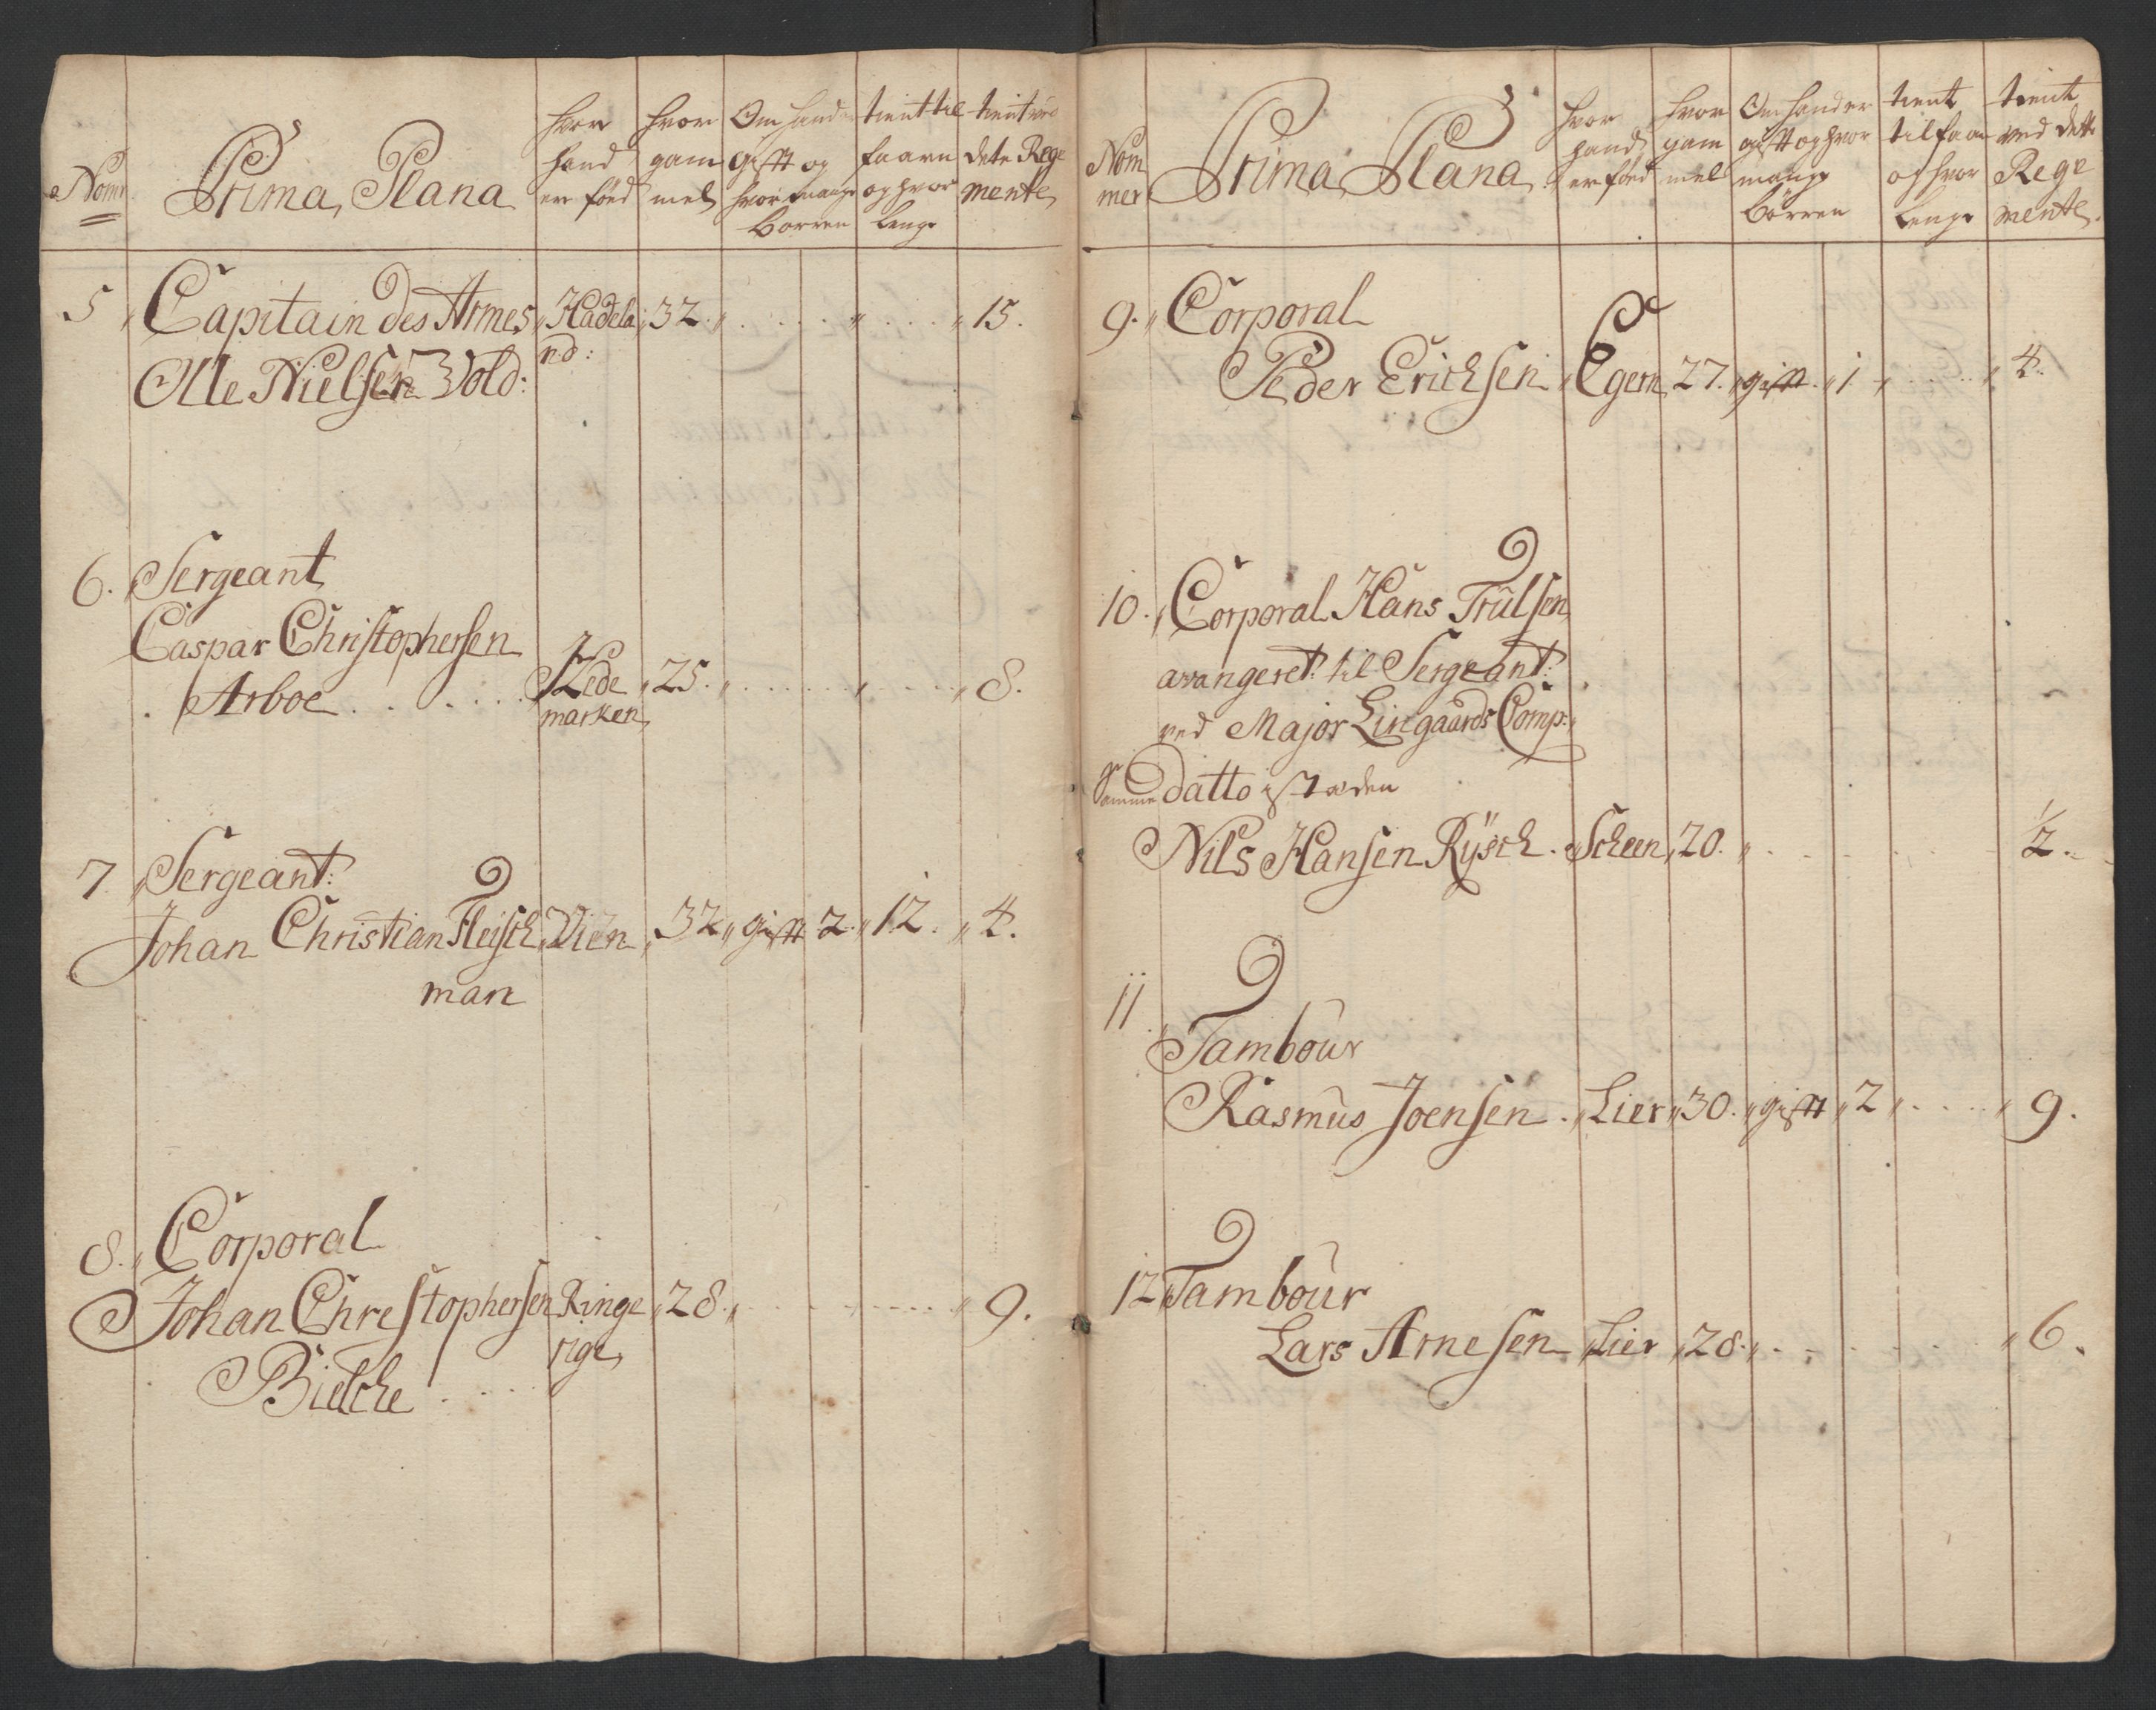 Nomr
Prima Plana
hvor
hand
er föed
hvor
gam
mel
Om hand er
gift og
hvor mange
börren
tient til
faarn
og hvor
lenge
tient ved
dete Rege
mente
5 Capitain des Armes Hadela 32. 15.
Olle Nielsen Vold: nd:
6. Sergeant
Caspar Christophersen
Arboe Hede 25. 8.
marken
7. Sergeant:
Johan Christian Fleisch Vien 32 gift 2. 12. 4.
man
8. Corporal
Johan Chrestophersen Ringe 28. 9.
Bielche rige
Nom
mer
Prima Plana
hvor
hand
er föed
hvor
gam
mel
Om hand er
gift og hvor
mange
börren
tient
til faarn
og hvor
lenge
tient
ved dette
Rege
mente.
9. Corporal
Peder Erichsen Egern 27. gift 1 4.
10. Corporal Hans Trulsen
avangeret til Sergeant:
ved Major Lingaards Comp:
samme datto istæden
Nils Hansen Rÿsch. Scheen 20. 1/2.
11
Tambour
Rasmus Joensen. Lier 30. gift 2 9.
12 Tambour
Lars Arnesen Lier 28. 6.